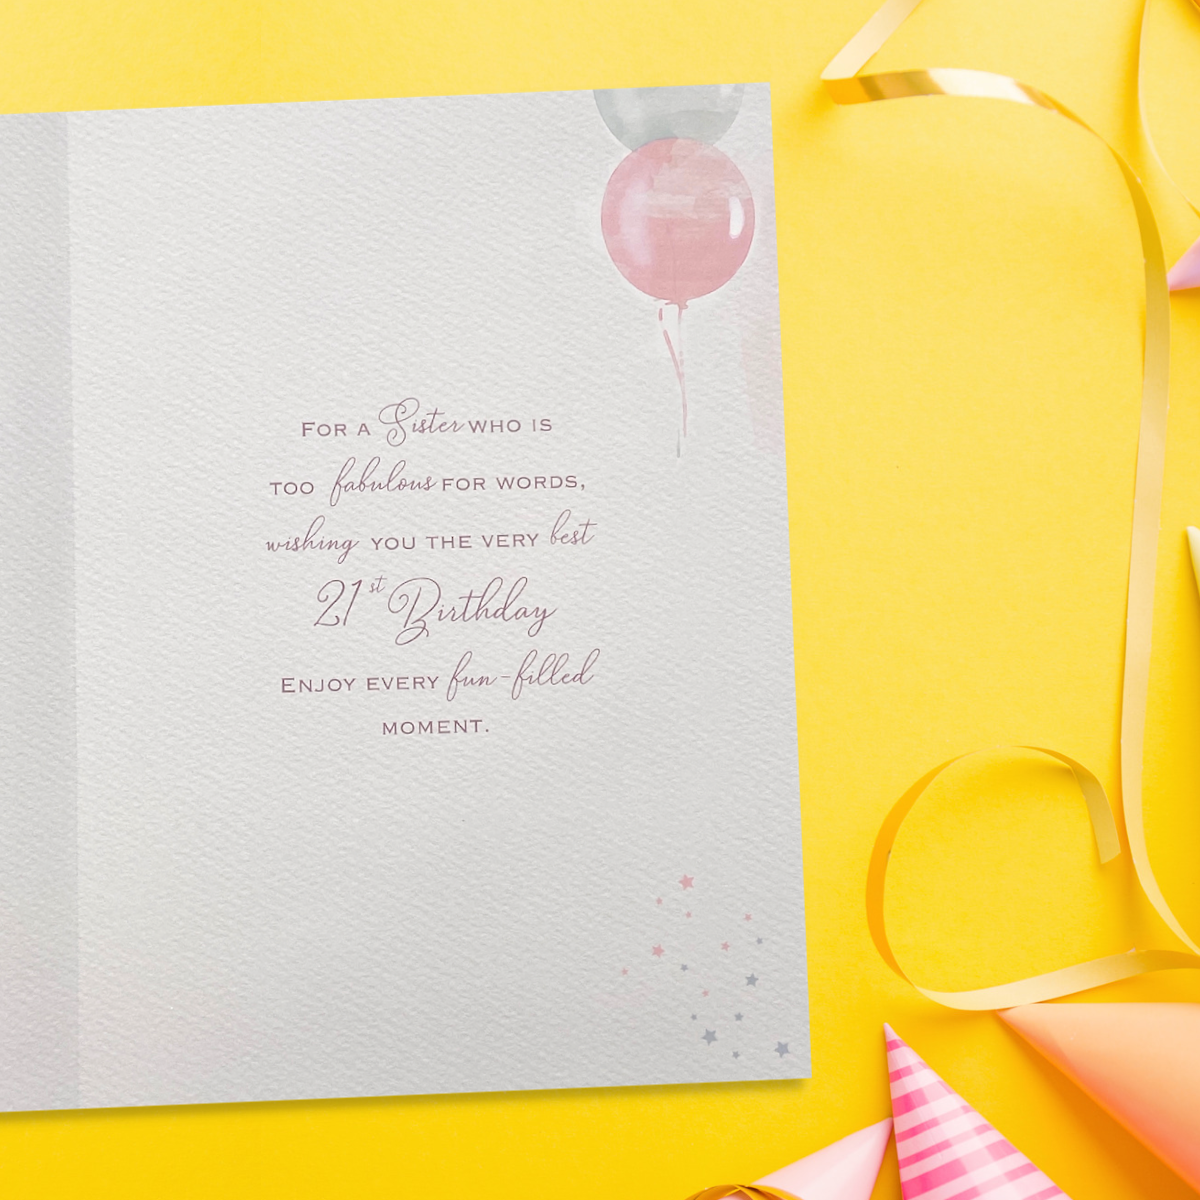 For a Sister who is
too fabulous for words,
wishing you the very best
21st Birthday
Enjoy every fun-filled
moment.